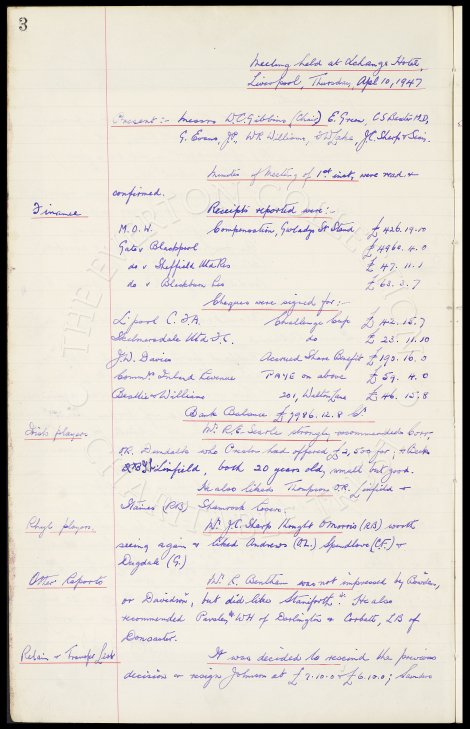 3
Meeting held at Exchange Hotel,
Liverpool, Thursday, April 10, 1947
Present :- Messrs W.C. Gibbins, (Chair) E. Green, C.S. Baxter M.D,
G. Evans. J.P., W.R. Williams, J.C. Sharp & Secy.
Minutes of Meeting of 1st inst, were read &
confirmed.
Finance
Receipts reported were :-
M.O.W. Compensation, Gwladys St Stand £426.19.10
Gate v Blackpool £4960.4.0
do v Sheffield Utd Res £47.11.1
do v Blackburn Res £63.3.7
Cheques were signed for :-
L'pool C.F.A. Challenge Cup £42.15.7
Skelmersdale Utd F.C. do £23.11.10
J.W. Davies Accrued Share Benefit £190.16.0
Commrs Inland Revenue PAYE on above £59.4.0
Beadle & Williams 201, Walton Lane £46.15.8
Bank Balance £7986.12.8 Cr
Irish players
Mr. R.E. Searle strongly recommended Corr,
OR. Dundalk who Preston had offered £2,500 for; &
Linfield, both 20 years old, small but good.
He also liked Thompson O.R. Linfield &
(RB) Shamrock Rovers.
players
Mr. J.C. Sharp thought Morris (RB) worth
seeing again & liked Andrews (OL.) Spendlove (CF.) &
Dugdale (G.)
Other Reports
Mr. R. Bentham was not impressed by Bowden,
or Davidson, but did like Staniforth. He also
recommended Parsley WH of Darlington & Corbett, LB of
Doncaster.
Retain & Transfer List
It was decided to rescind the previous
decision & resign Johnson at £7.10.0 & £6.10.0; Saunders
THE EVERTON COLLECTION
CHARITABLE TRUST